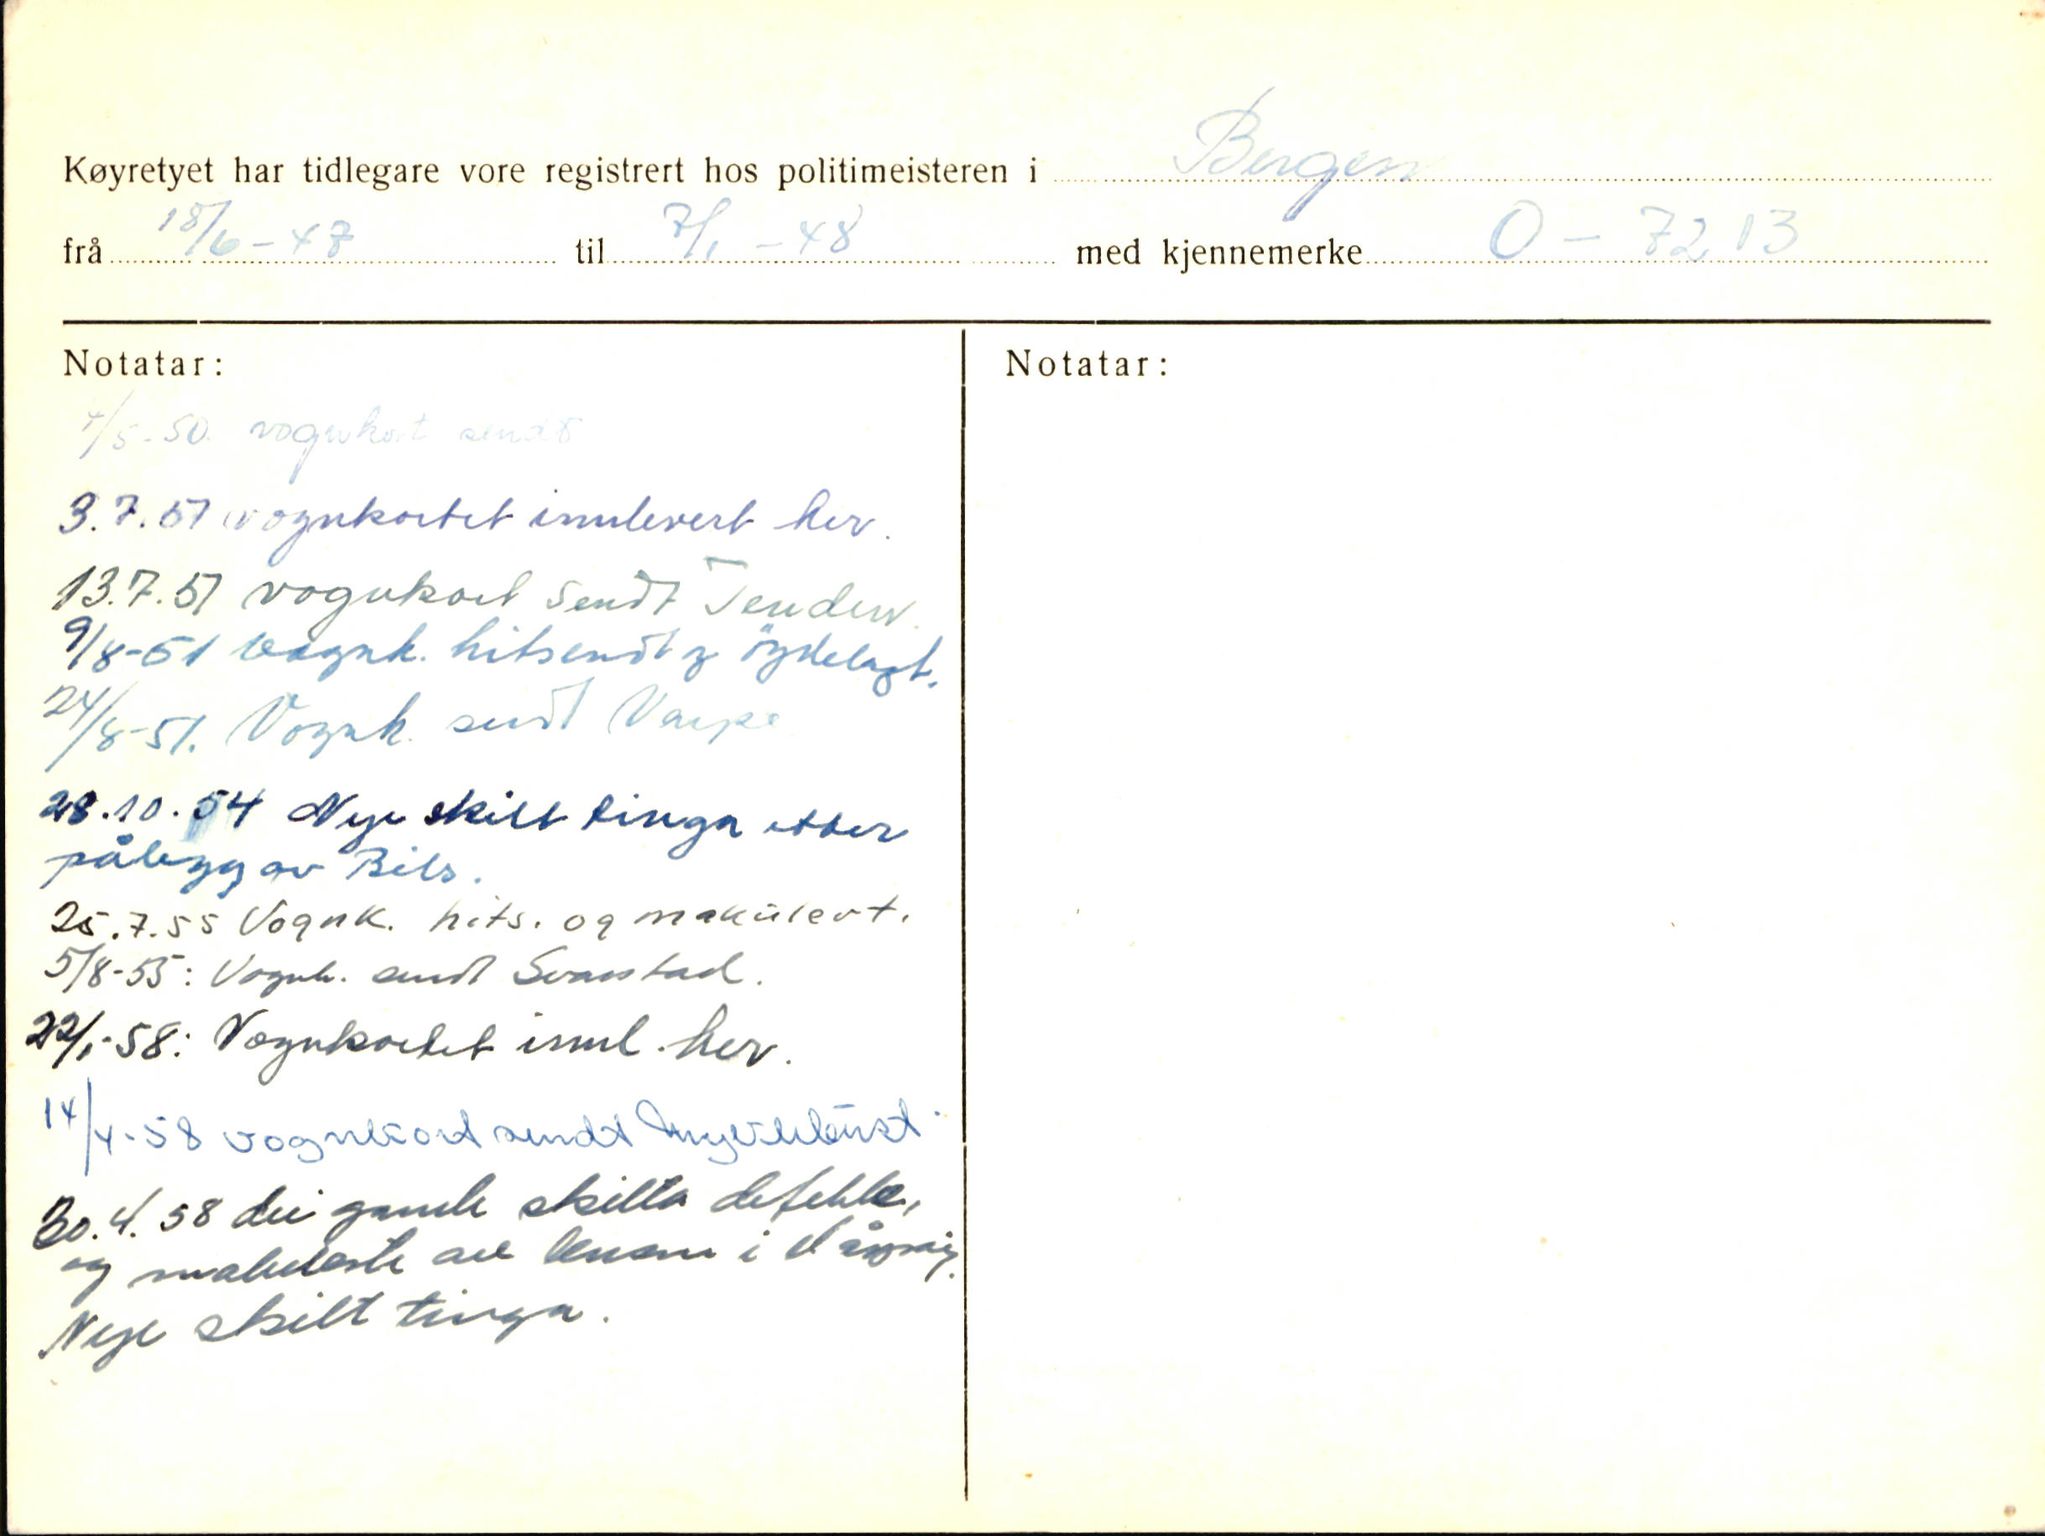 Køyretyet har tidlegare vore registrert hos politimeisteren i Bergen
frå 18/6-47 til 7/1-48 med kjennemerke O-7213
Notatar:
4/5-50. vognkort sendt
3.7.51 vognkortet innlevert her.
13.7.51 vognkort sendt
9/8-51 Vognk. hitsendt og öydelagt.
24/8-51. Vognk. sendt
28.10.54 Nye skilt tinga etter
pålegg av Bils.
25.7.55 Vognk. hits. og makulert.
5/8-55: Vognk. sendt Svanstad.
22/1-58: Vognkortet innl. her.
14/4-58 vognkort sendt
30.4.58 dei gamle skilta defekte,
og makulerte av lensm i
Nye skilt tinga.
Notatar: